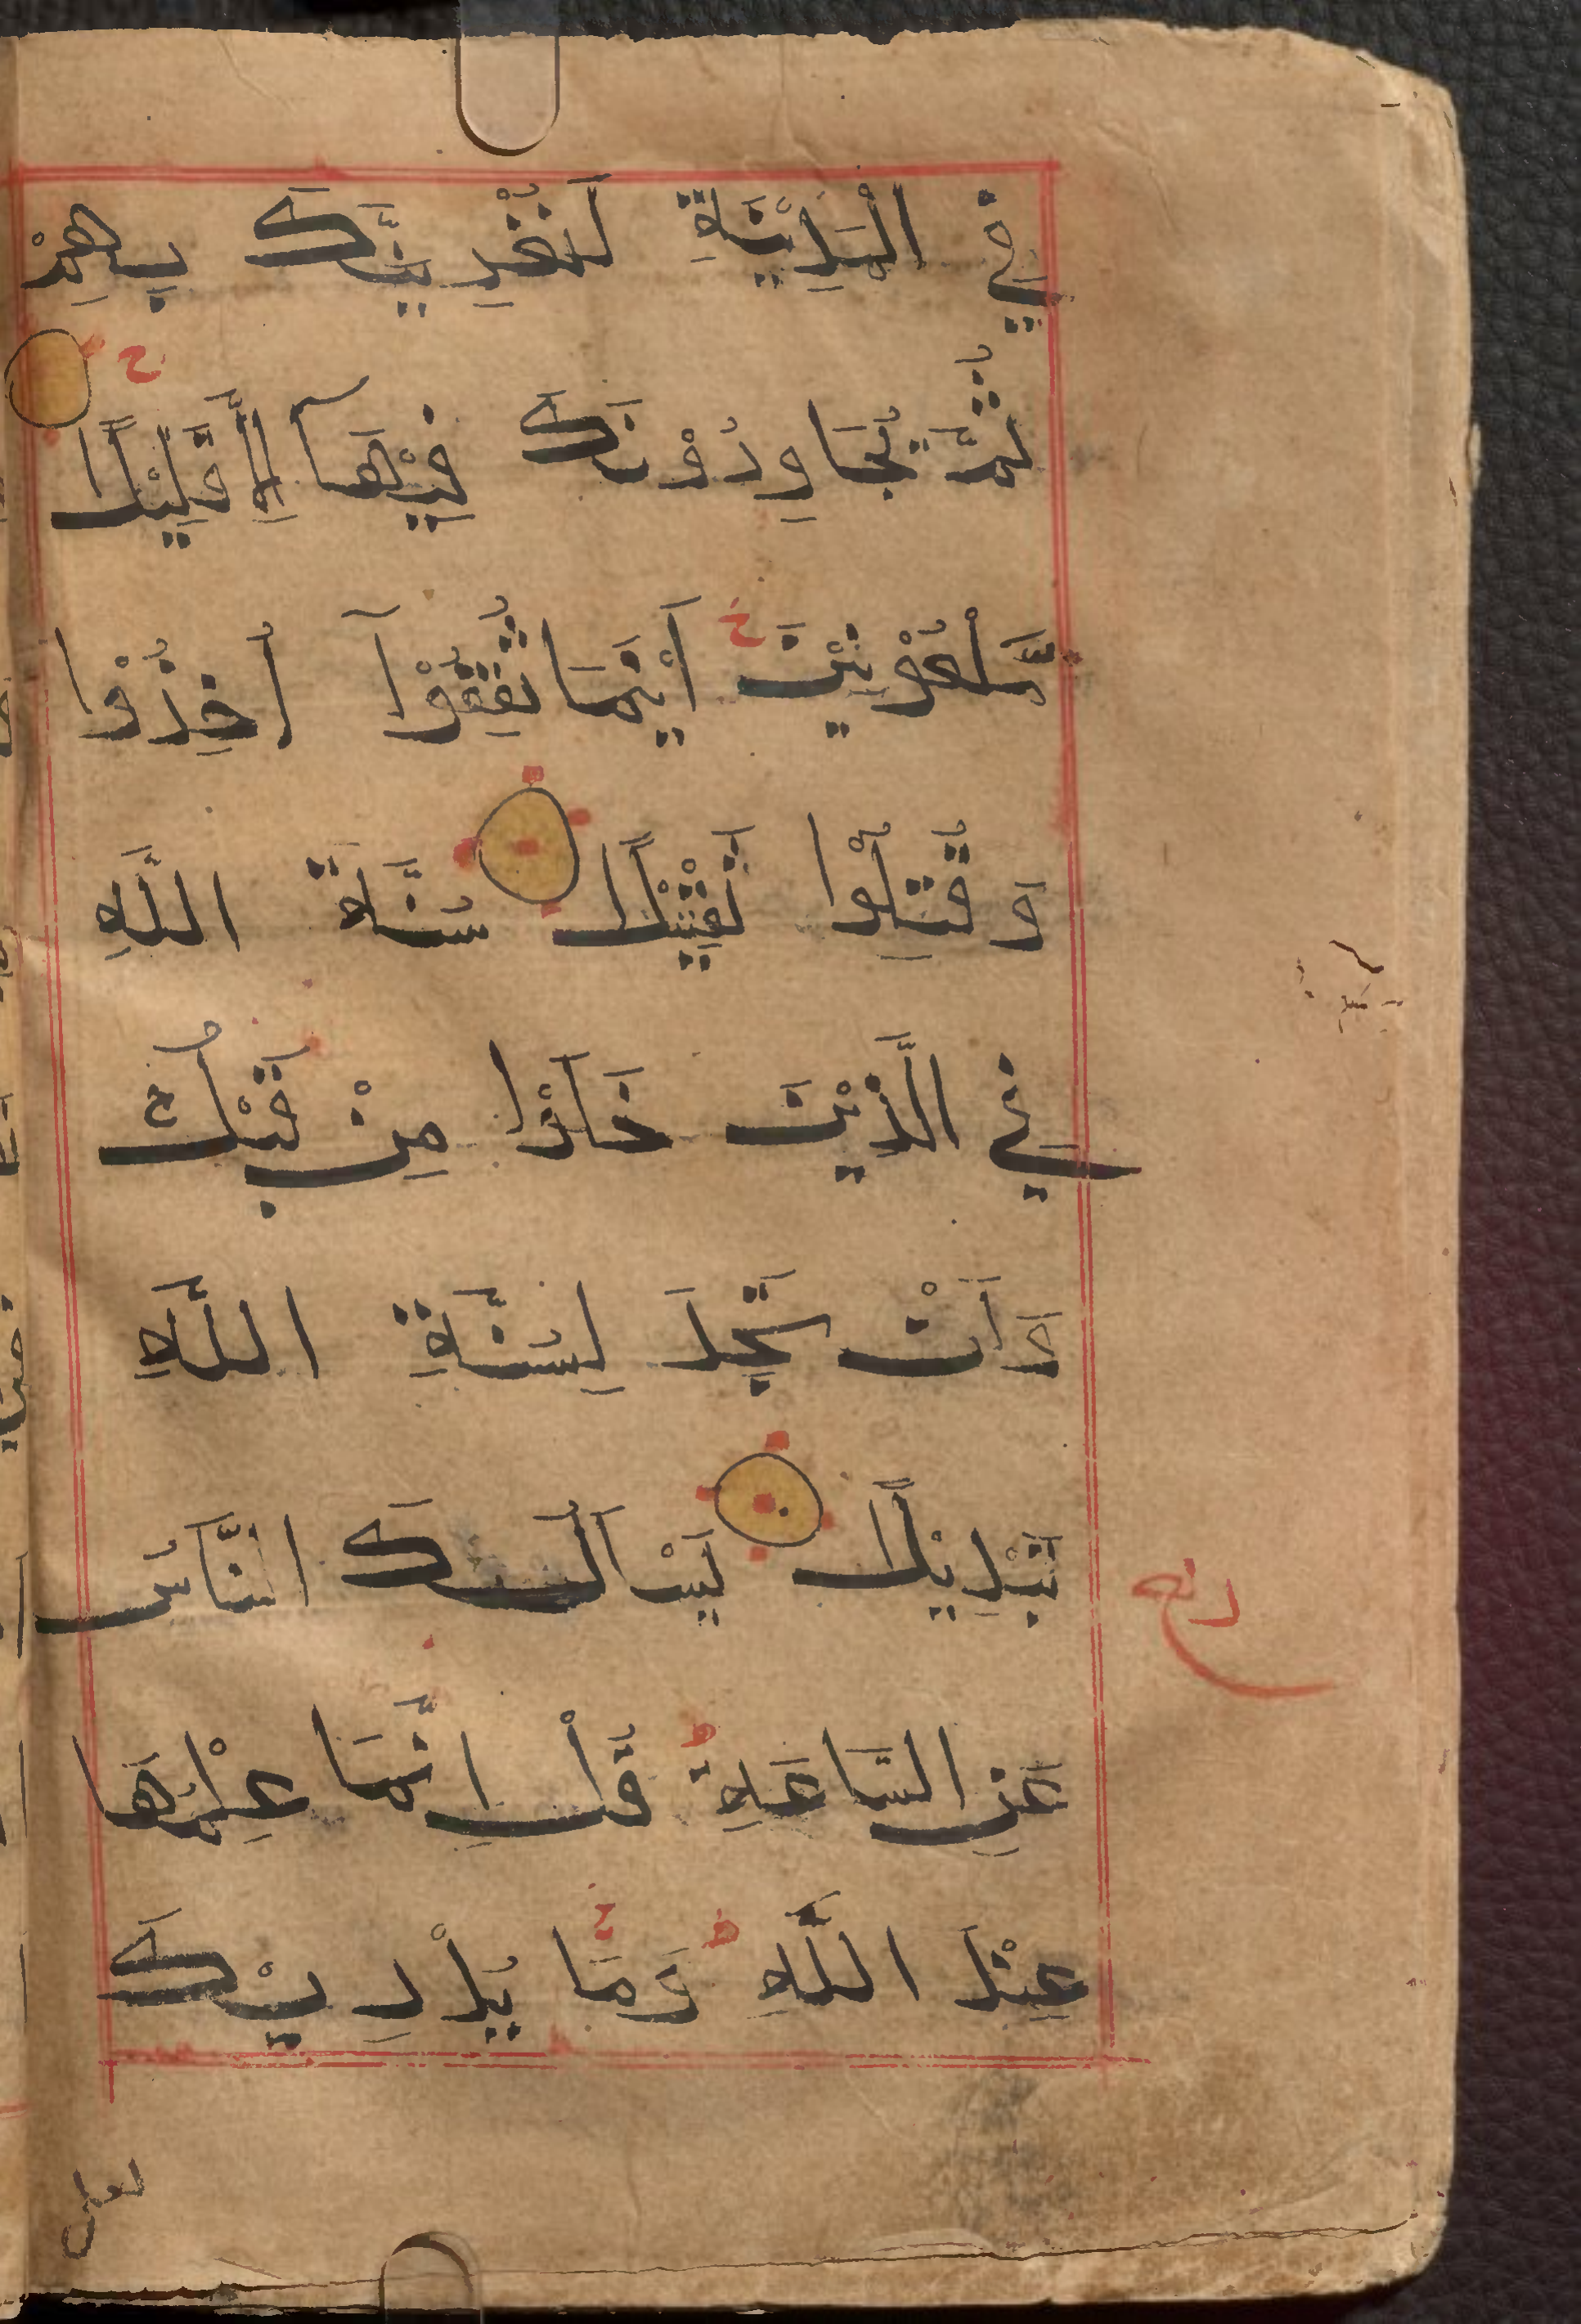 فِي الْمَدِيْنَةِ لَنُغْرِيَنَّكَ بِهِمْ
ثُمَّ يُجَاوِرُوْنَكَ فِيْهَآ اِلَّا قَلِيْلًا
مَّلْعُوْنِيْنَ اَيْنَمَا ثُقِفُوْآ اُخِذُوْا
وَ قُتِّلُوْا تَقْتِيْلًا سُنَّةَ اللّٰهِ
فِي الَّذِيْنَ خَلَوْا مِنْ قَبْلُ ج
وَ لَنْ تَجِدَ لِسُنَّةِ اللّٰهِ
تَبْدِيْلًا يَسْاَلُكَ النَّاسُ
عَنِ السَّاعَةِ ط قُلْ اِنَّمَا عِلْمُهَا
عِنْدَ اللّٰهِ ط وَمَا يُدْرِيْكَ
لعل